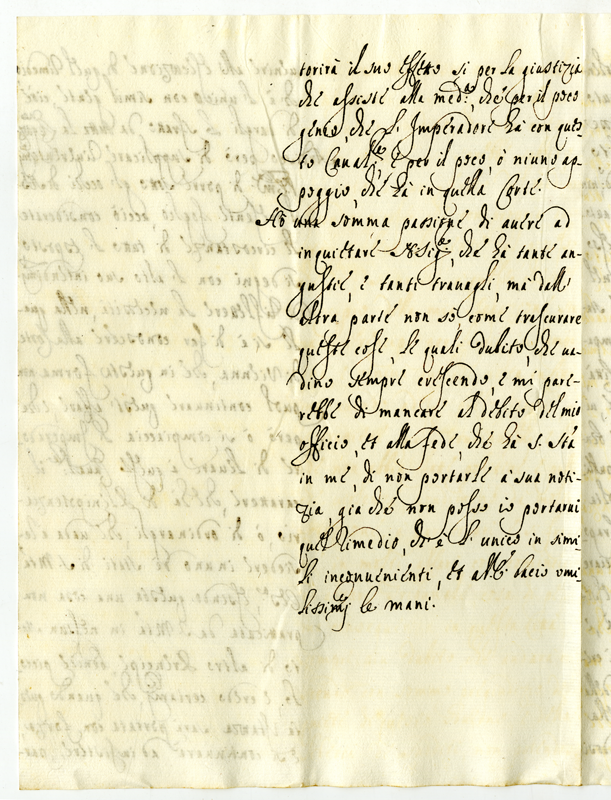 torirà il suo effetto si per la giustizia
che assiste alla med.ª, che per il poco
genio, che l'Imperadore hà con ques-
to Canal.re, e per il poco, ò niuno ap-
poggio, che hà in quella Corte.
Hò una somma passione di auere ad
inquietare V. Sig.ª, che hà tante an-
gustie, e tanti trauagli, mà dall'
altra parte non sò come trascurare
queste cose, le quali dubito, che ua-
dino sempre crescendo, e mi par-
rebbe di mancare al debito del mio
officio, et alla fede, che hà S. Stà
in me, di non portarle à sua noti-
zia, già che non posso io portarui
quel rimedio, ch'è l'unico in simi-
li inconuenienti, et all' bacio umi-
lissimj le mani.